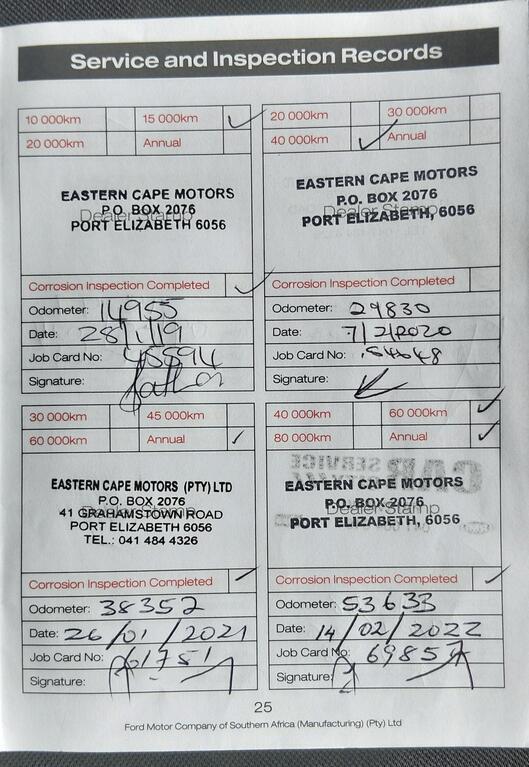 Service and Inspection Records
10 000km 15 000km ✓
20 000km Annual
EASTERN CAPE MOTORS
P.O. BOX 2076
Dealer Stamp
PORT ELIZABETH 6056
Corrosion Inspection Completed ✓
Odometer: 14955
Date: 28/1/19
Job Card No: 45594
Signature:
20 000km 30 000km
40 000km ✓ Annual
EASTERN CAPE MOTORS
P.O. BOX 2076
Dealer Stamp
PORT ELIZABETH, 6056
Corrosion Inspection Completed
Odometer: 29830
Date: 7/2/2020
Job Card No: 54648
Signature:
30 000km 45 000km
60 000km Annual ✓
EASTERN CAPE MOTORS (PTY) LTD
P.O. BOX 2076
Dealer Stamp
41 GRAHAMSTOWN ROAD
PORT ELIZABETH 6056
TEL.: 041 484 4326
Corrosion Inspection Completed ✓
Odometer: 38352
Date: 26/01/2021
Job Card No: 61751
Signature:
40 000km 60 000km ✓
80 000km Annual ✓
CAR SERVICE
EASTERN CAPE MOTORS
P.O. BOX 2076
Dealer Stamp
PORT ELIZABETH, 6056
Corrosion Inspection Completed ✓
Odometer: 53633
Date: 14/02/2022
Job Card No: 69857
Signature:
25
Ford Motor Company of Southern Africa (Manufacturing) (Pty) Ltd